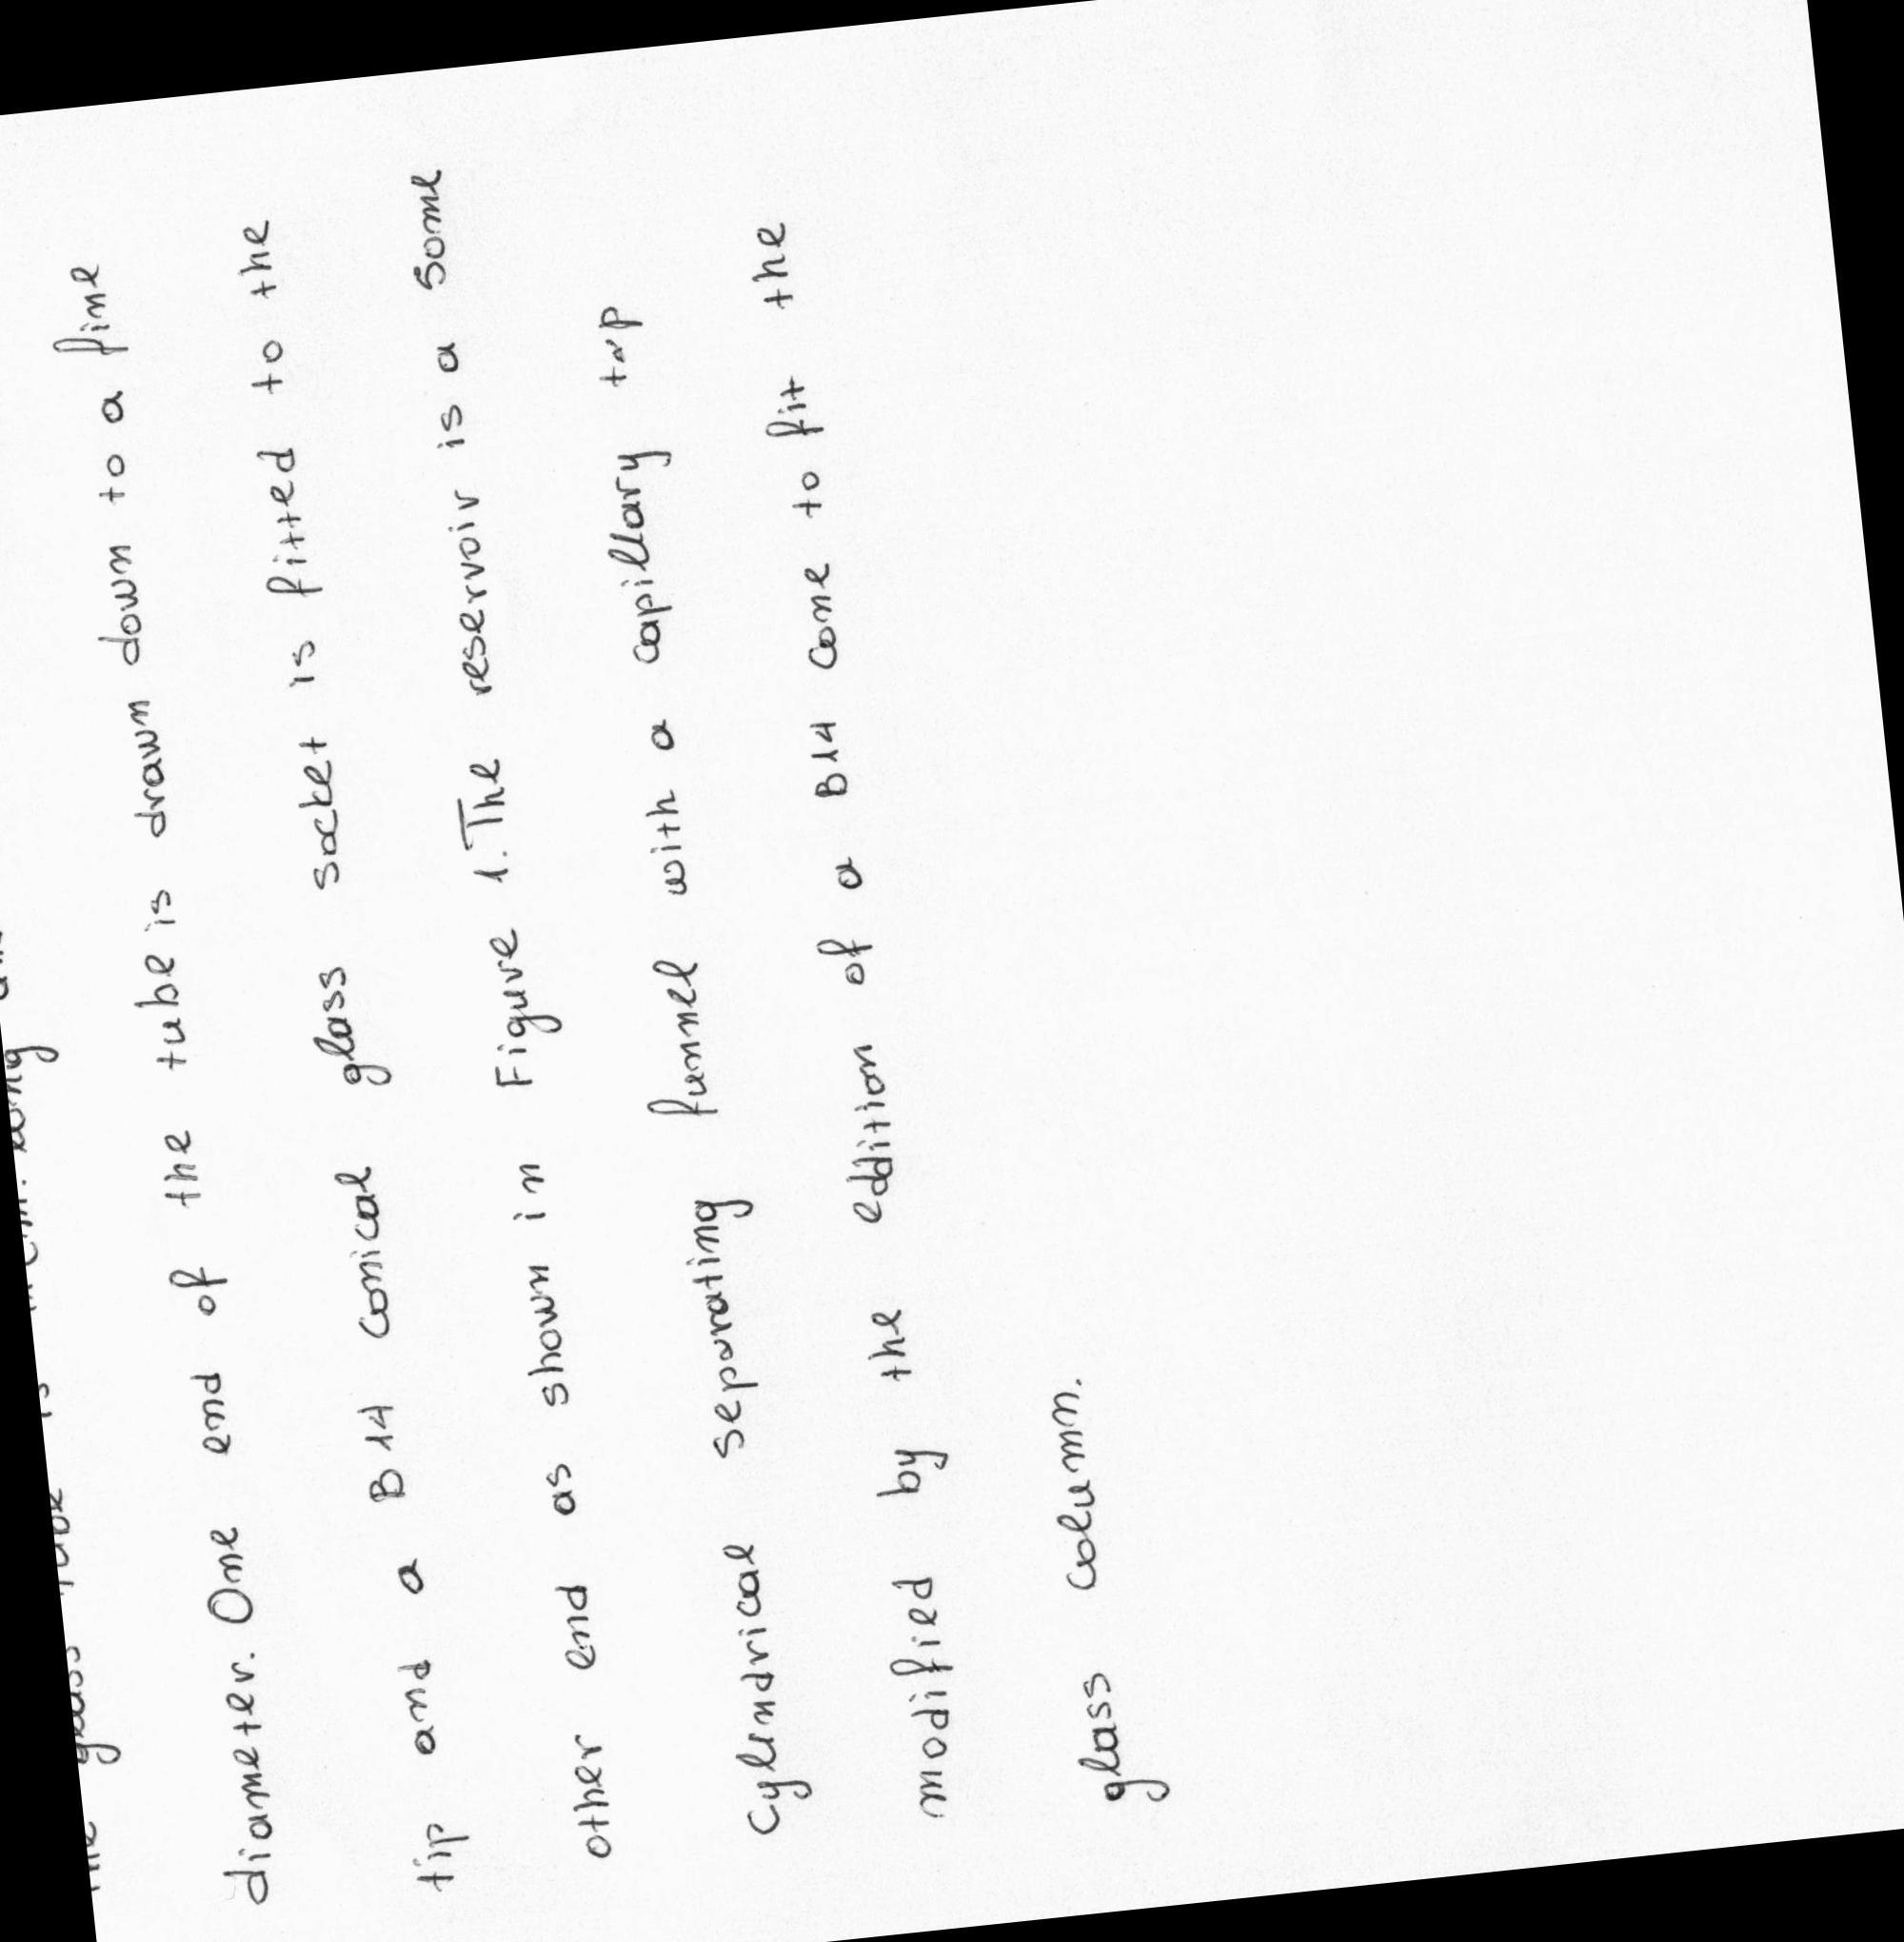 glass tube is
diameter. One end of the tube is drawn down to a fine
tip and a B14 conical glass socket is fitted to the
other end as shown in Figure 1. The reservoir is a some
Cylindrical separating funnel with a capillary tap
modified by the eddition of a B14 cone to fit the
glass column.